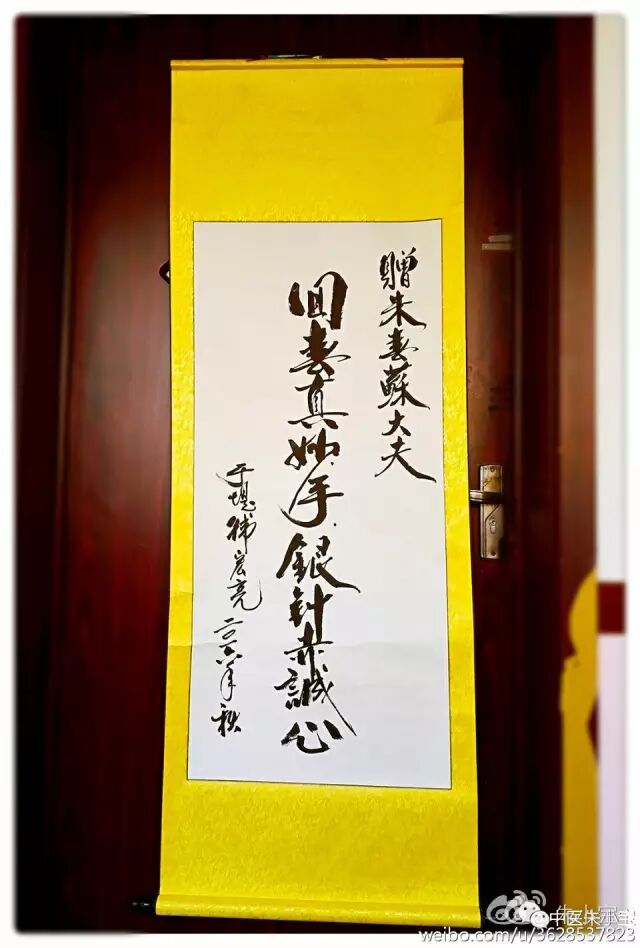 贈朱春蘇大夫
回春真妙手銀針赤誠心
二〇一六年秋
中医朱小宝
weibo.com/u/3628537823